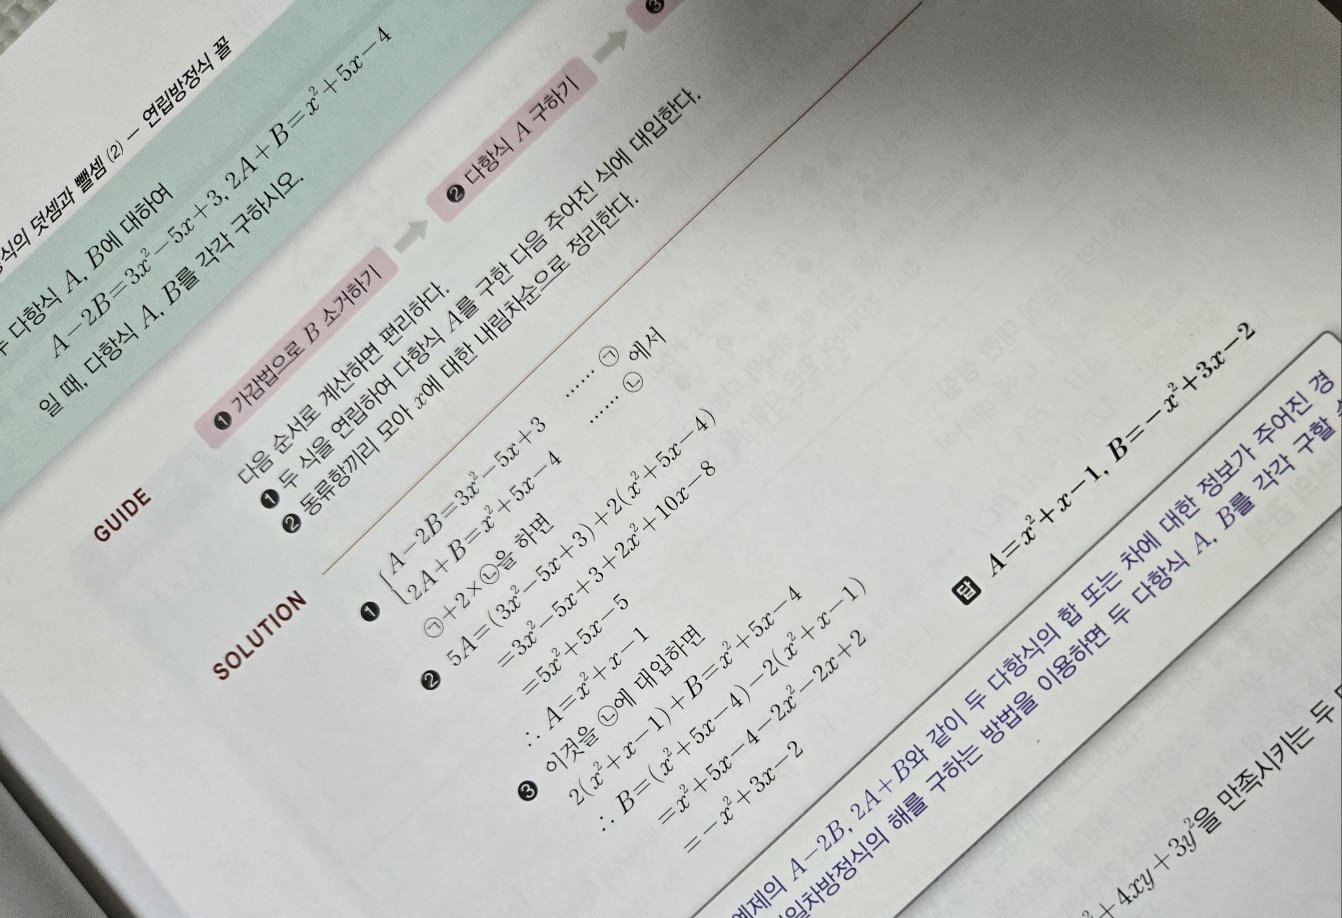 식의 덧셈과 뺄셈 (2) – 연립방정식 꼴
다항식 A, B에 대하여
A−2B=3x²−5x+3, 2A+B=x²+5x−4
일 때, 다항식 A, B를 각각 구하시오.
GUIDE
❶ 가감법으로 B 소거하기 ➡ ❷ 다항식 A 구하기 ➡ ❸
다음 순서로 계산하면 편리하다.
❶ 두 식을 연립하여 다항식 A를 구한 다음 주어진 식에 대입한다.
❷ 동류항끼리 모아 x에 대한 내림차순으로 정리한다.
SOLUTION
❶ { A−2B=3x²−5x+3 …… ㉠
2A+B=x²+5x−4 …… ㉡ 에서
㉠+2×㉡을 하면
❷ 5A=(3x²−5x+3)+2(x²+5x−4)
=3x²−5x+3+2x²+10x−8
=5x²+5x−5
∴ A=x²+x−1
❸ 이것을 ㉡에 대입하면
2(x²+x−1)+B=x²+5x−4
∴ B=(x²+5x−4)−2(x²+x−1)
=x²+5x−4−2x²−2x+2
=−x²+3x−2
답 A=x²+x−1, B=−x²+3x−2
예제의 A−2B, 2A+B와 같이 두 다항식의 합 또는 차에 대한 정보가 주어진 경
일차방정식의 해를 구하는 방법을 이용하면 두 다항식 A, B를 각각 구할
+4xy+3y²을 만족시키는 두